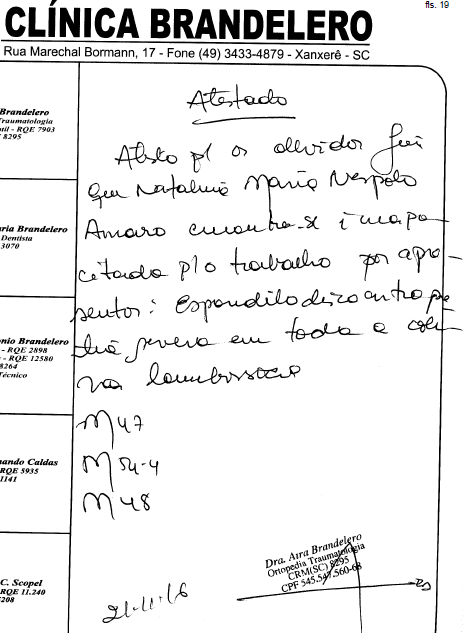 fls. 19
CLÍNICA BRANDELERO
Rua Marechal Bormann, 17 - Fone (49) 3433-4879 - Xanxerê - SC
Brandelero
Traumatologia
- RQE 7903
8295
aria Brandelero
Dentista
3070
onio Brandelero
- RQE 2898
- RQE 12580
8264
Técnico
nando Caldas
RQE 5935
1141
C. Scopel
RQE 11.240
208
Atestado
Atesto p/ os devidos fins
que Maria Nespolo
Amaro encontra-se incapa-
citada p/o trabalho por apre-
sentar: Espondilodiscoartropa-
tia severa em toda a colu-
na lombossacra
M47
M54-4
M48
21-11-16
Dra. Aira Brandelero
Ortopedia Traumatologia
CRM(SC) 8295
CPF 545.547.560-68